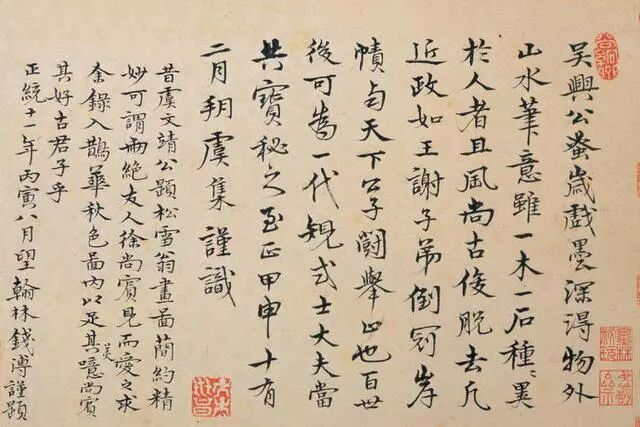 吴興公蚤歲戲墨深得物外
山水筆意雖一木一石種〻異
於人者且風尚古俊脱去凡
近政如王謝子弟倒冠岸
幘与天下公子鬭舉止也百世
後可為一代規式士大夫當
共寶秘之至正甲申十有
二月朔虞集謹識
昔虞文靖公題松雪翁畫啚簡約精
妙可謂兩絶友人徐尚賓見而愛之求
余錄入鵲華秋色啚内以足其美噫尚賓
其好古君子乎
正統十一年丙寅八月望翰林錢溥謹題